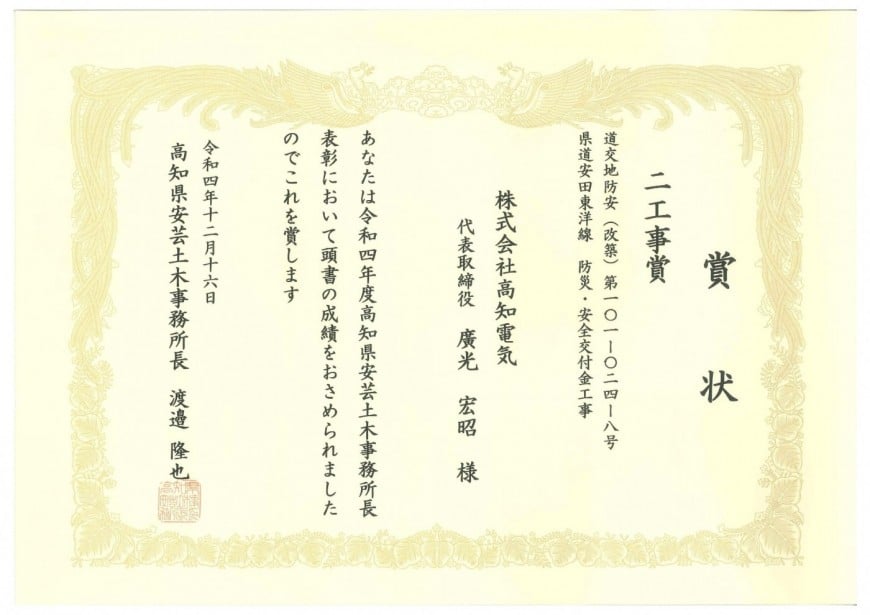 賞状
二工事賞
道交地防安（改築）第一〇一－〇二四－八号
県道安田東洋線　防災・安全交付金工事
株式会社高知電気
代表取締役　廣光　宏昭　様
あなたは令和四年度高知県安芸土木事務所長
表彰において頭書の成績をおさめられました
のでこれを賞します
令和四年十二月十六日
高知県安芸土木事務所長　渡邉　隆也